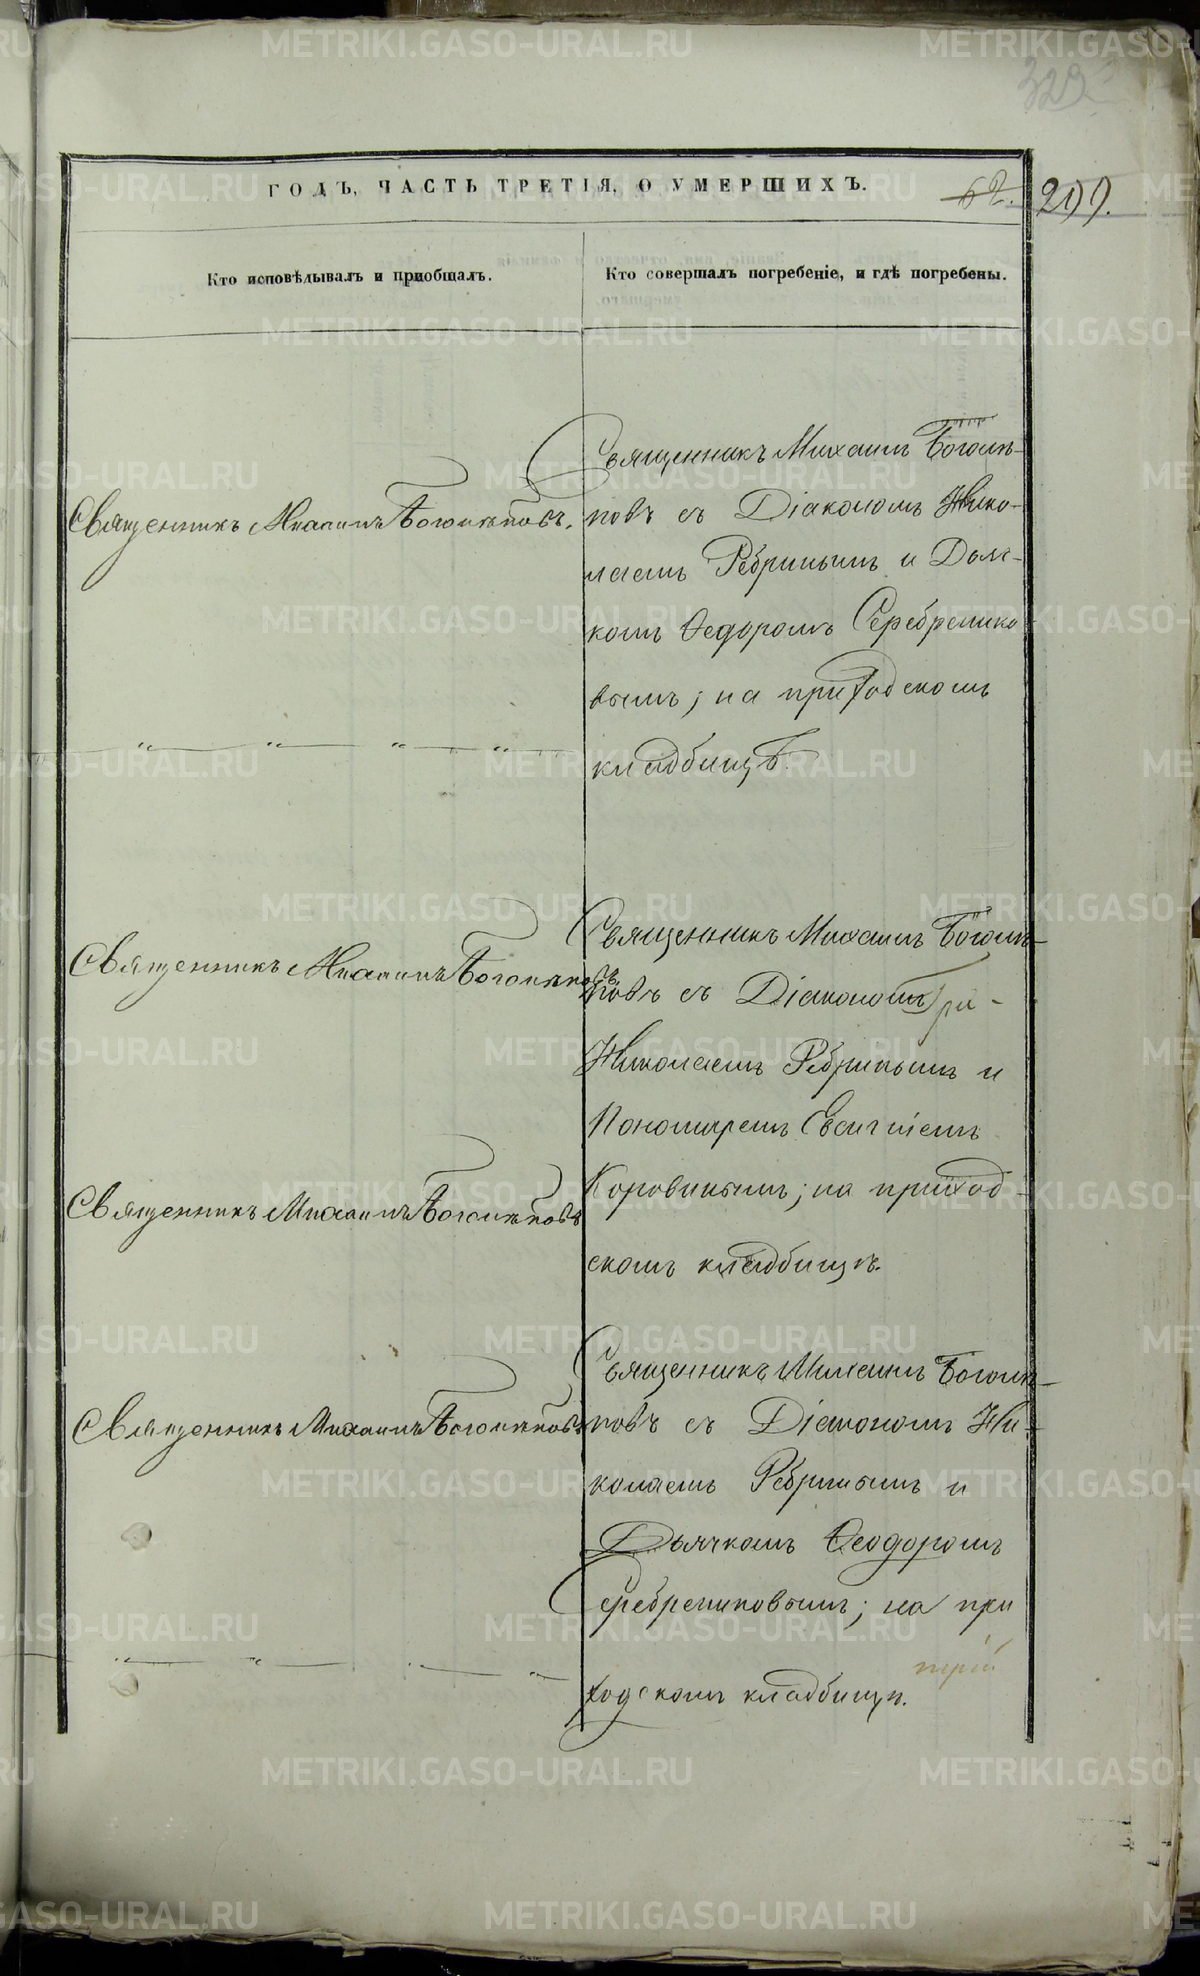 329
ГОДЪ, ЧАСТЬ ТРЕТІЯ, О УМЕРШИХЪ.
62.
Кто исповѣдывалъ и пріобщалъ.
Кто совершалъ погребеніе, и гдѣ погребены.
Священникъ Михаилъ Боголѣповъ.
Священникъ Михаилъ Боголѣ-
повъ съ Діакономъ Нико-
лаемъ Ребринымъ и Дьяч-
комъ Ѳедоромъ Серебренико
вымъ; на приходскомъ
кладбищѣ.
Священникъ Михаилъ Боголѣповъ
Священникъ Михаилъ Боголѣ-
повъ съ Діакономъ
Николаемъ Ребринымъ и
Пономаремъ Евсигніемъ
Коровинымъ; на приход-
скомъ кладбищѣ.
Священникъ Михаилъ Боголѣповъ
Священникъ Михаилъ Боголѣповъ
Священникъ Михаилъ Боголѣ-
повъ съ Діакономъ Ни-
колаемъ Ребринымъ и
Дьячкомъ Ѳеодоромъ
Серебрениковымъ; на при
ходскомъ кладбищѣ.
METRIKI.GASO-URAL.RU